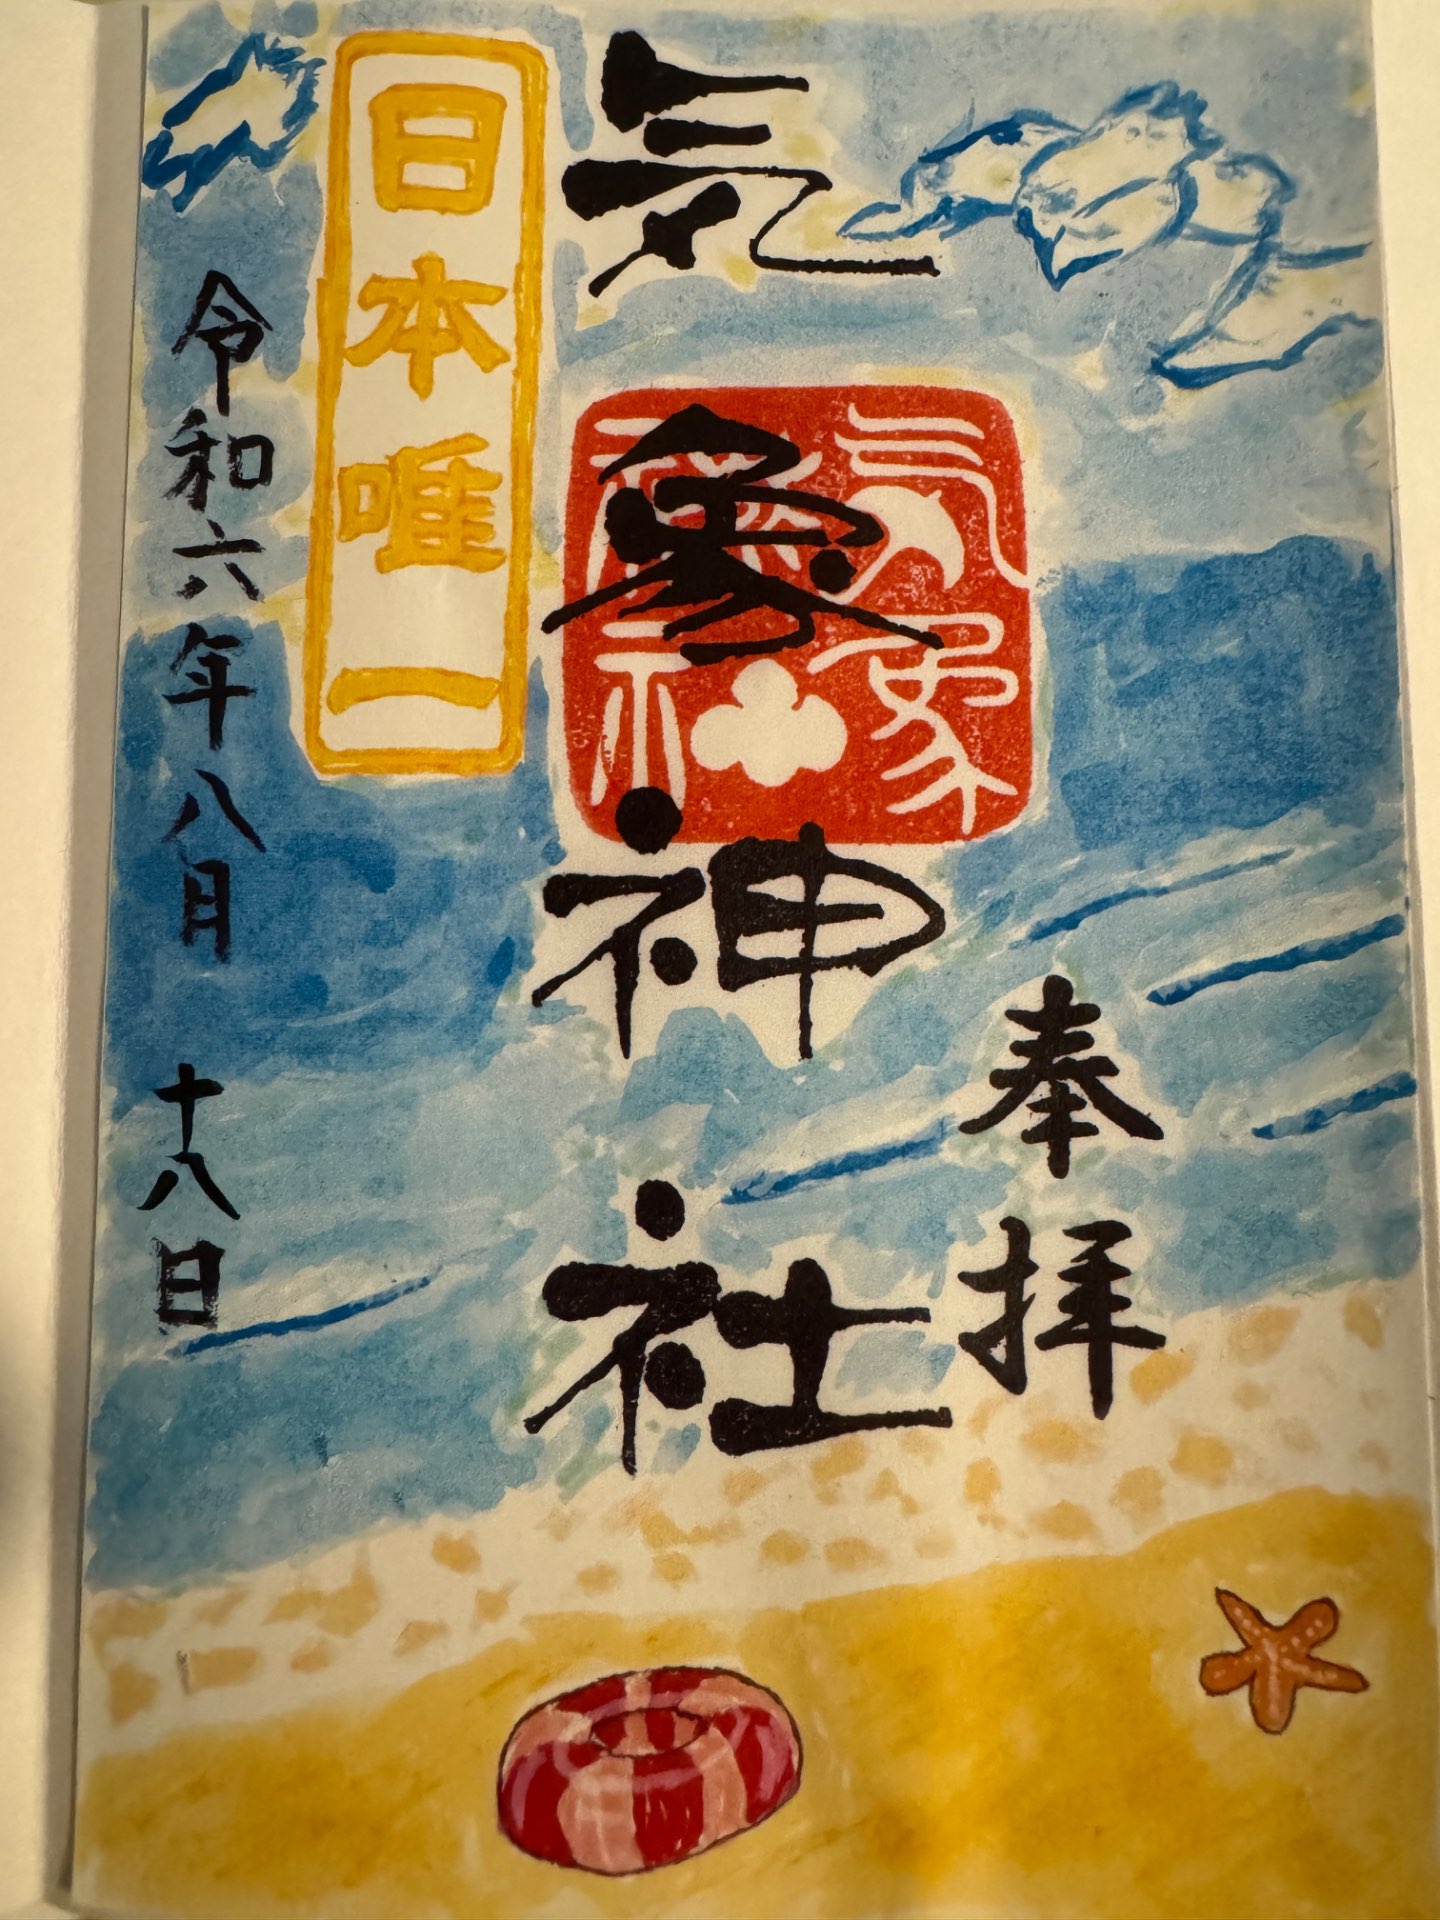 奉拝
気象神社
気象神社
日本唯一
令和六年八月 十八日